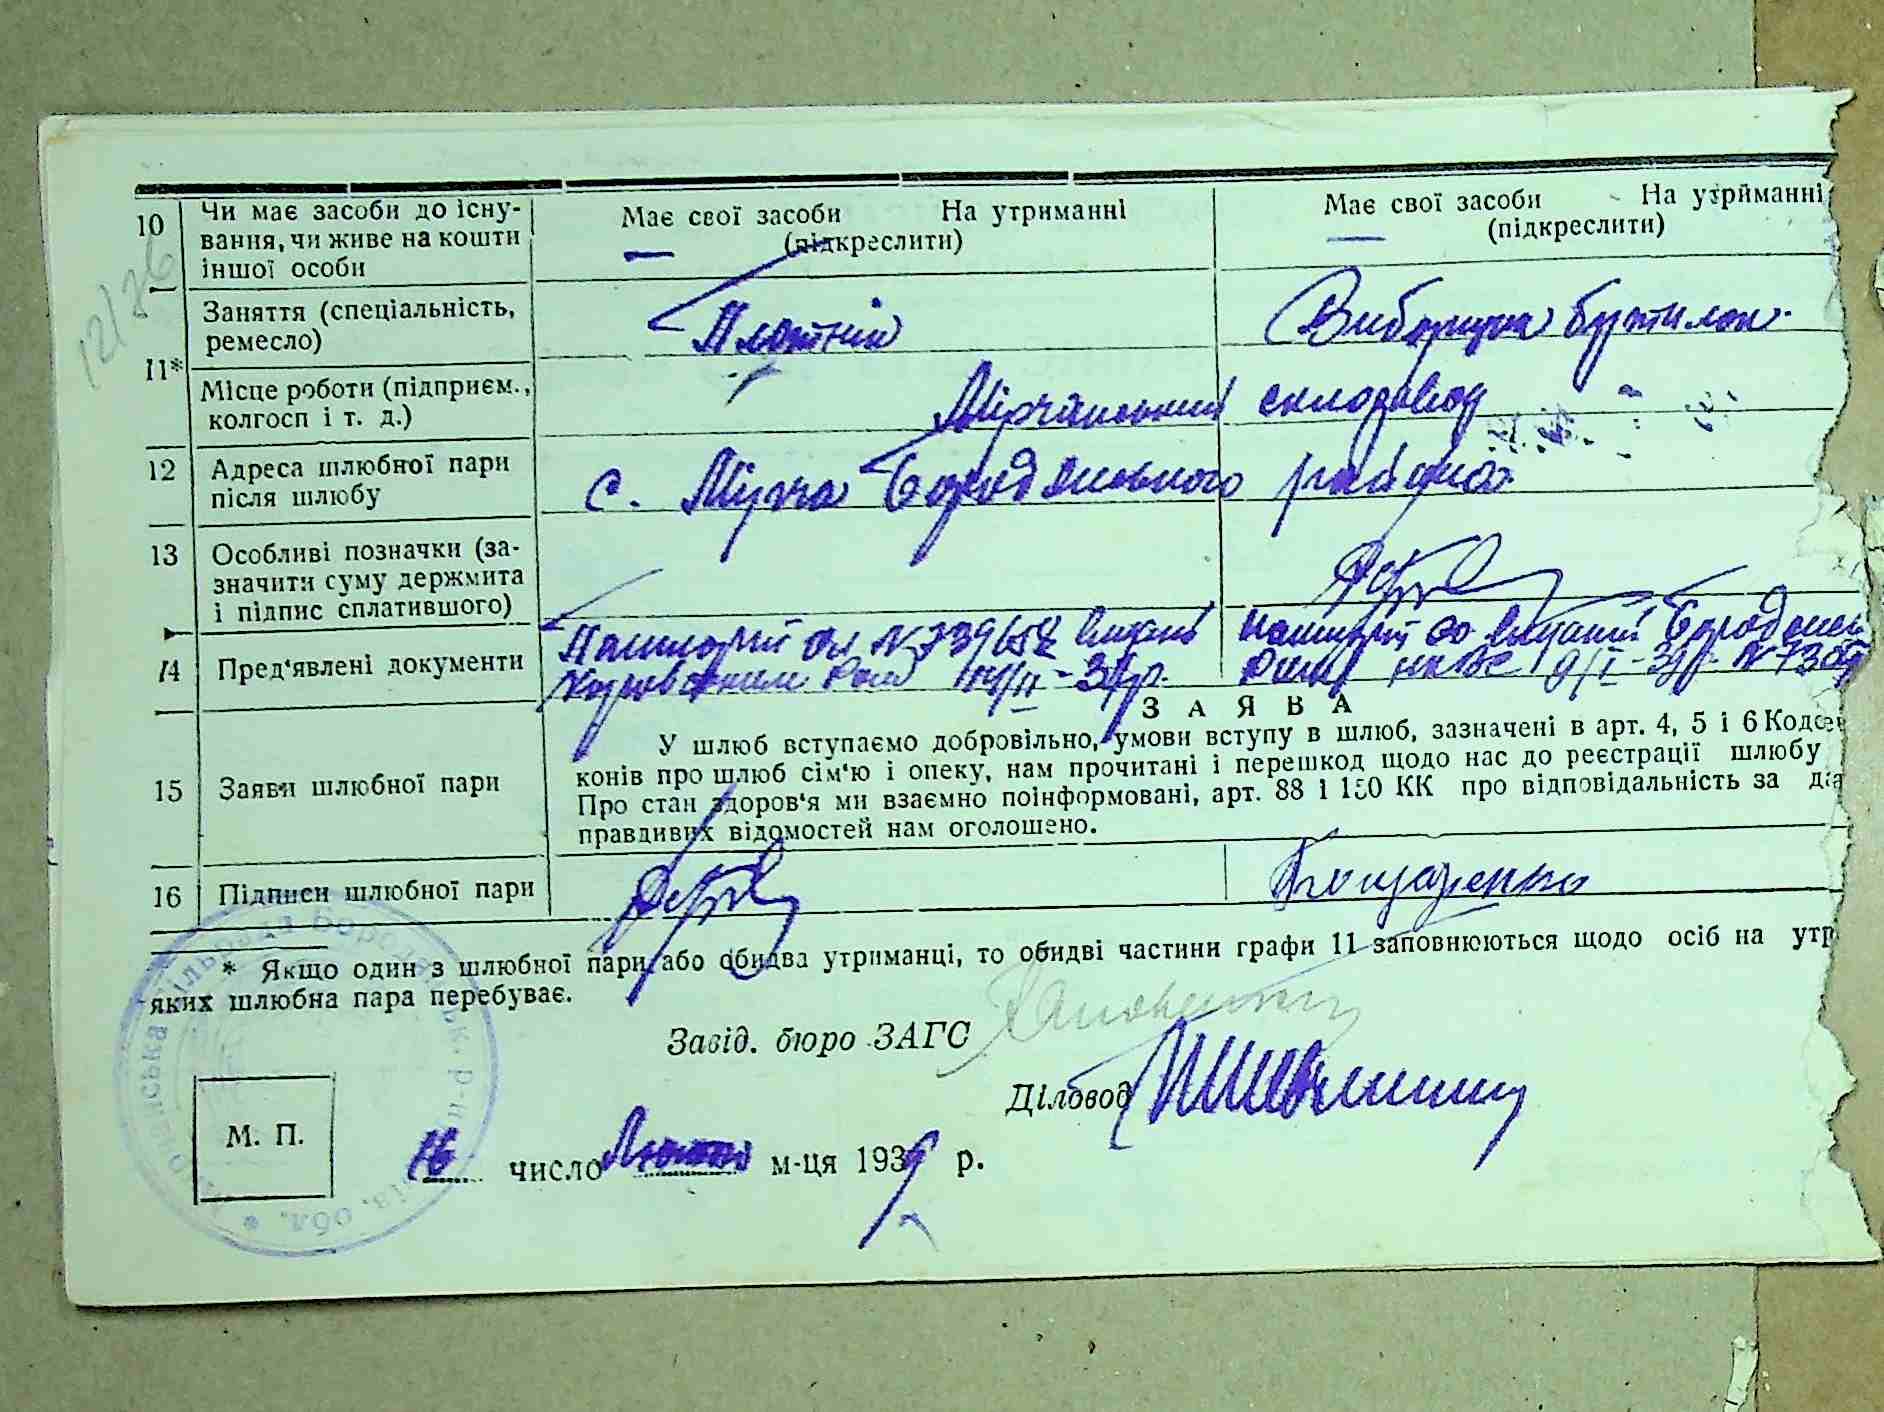 10 Чи має засоби до існу-
вання, чи живе на кошти
іншої особи
Має свої засоби На утриманні
(підкреслити)
Має свої засоби На утриманні
(підкреслити)
11* Заняття (спеціальність,
ремесло)
Плотнік
Виборщиця бутилок.
Місце роботи (підприєм.,
колгосп і т. д.)
Мірчанський склозавод
12 Адреса шлюбної пари
після шлюбу
с. Мірча Бородянського району
13 Особливі позначки (за-
значити суму держмита
і підпис сплатившого)
14 Пред'явлені документи
Пашпорт
Пашпорт
З А Я В А
15 Заяви шлюбної пари
У шлюб вступаємо добровільно, умови вступу в шлюб, зазначені в арт. 4, 5 і 6 Кодек
конів про шлюб сім'ю і опеку, нам прочитані і перешкод щодо нас до реєстрації шлюбу
Про стан здоров'я ми взаємно поінформовані, арт. 88 і 150 КК про відповідальність за
правдивих відомостей нам оголошено.
16 Підписи шлюбної пари
Гончаренко
* Якщо один з шлюбної пари або обидва утриманці, то обидві частини графи 11 заповнюються щодо осіб на утр
яких шлюбна пара перебуває.
Завід. бюро ЗАГС
Діловод
М. П.
16 число Лютого м-ця 1939 р.